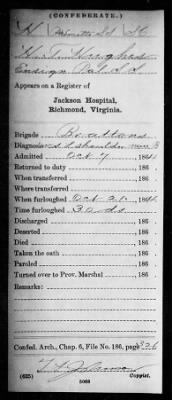 (CONFEDERATE.)
H S C
Appears on a Register of
Jackson Hospital,
Richmond, Virginia.
Brigade Brattons
Diagnosis shoulder
Admitted Oct 7 1864
Returned to duty , 186 .
When transferred , 186 .
Where transferred , 186 .
When furloughed Oct 1864
Time furloughed 30 ds
Discharged , 186 .
Deserted , 186 .
Died , 186 .
Taken the oath , 186 .
Paroled , 186 .
Turned over to Prov. Marshal , 186 .
Remarks:
Confed. Arch., Chap. 6, File No. 186, page 326
(635) Copyist.